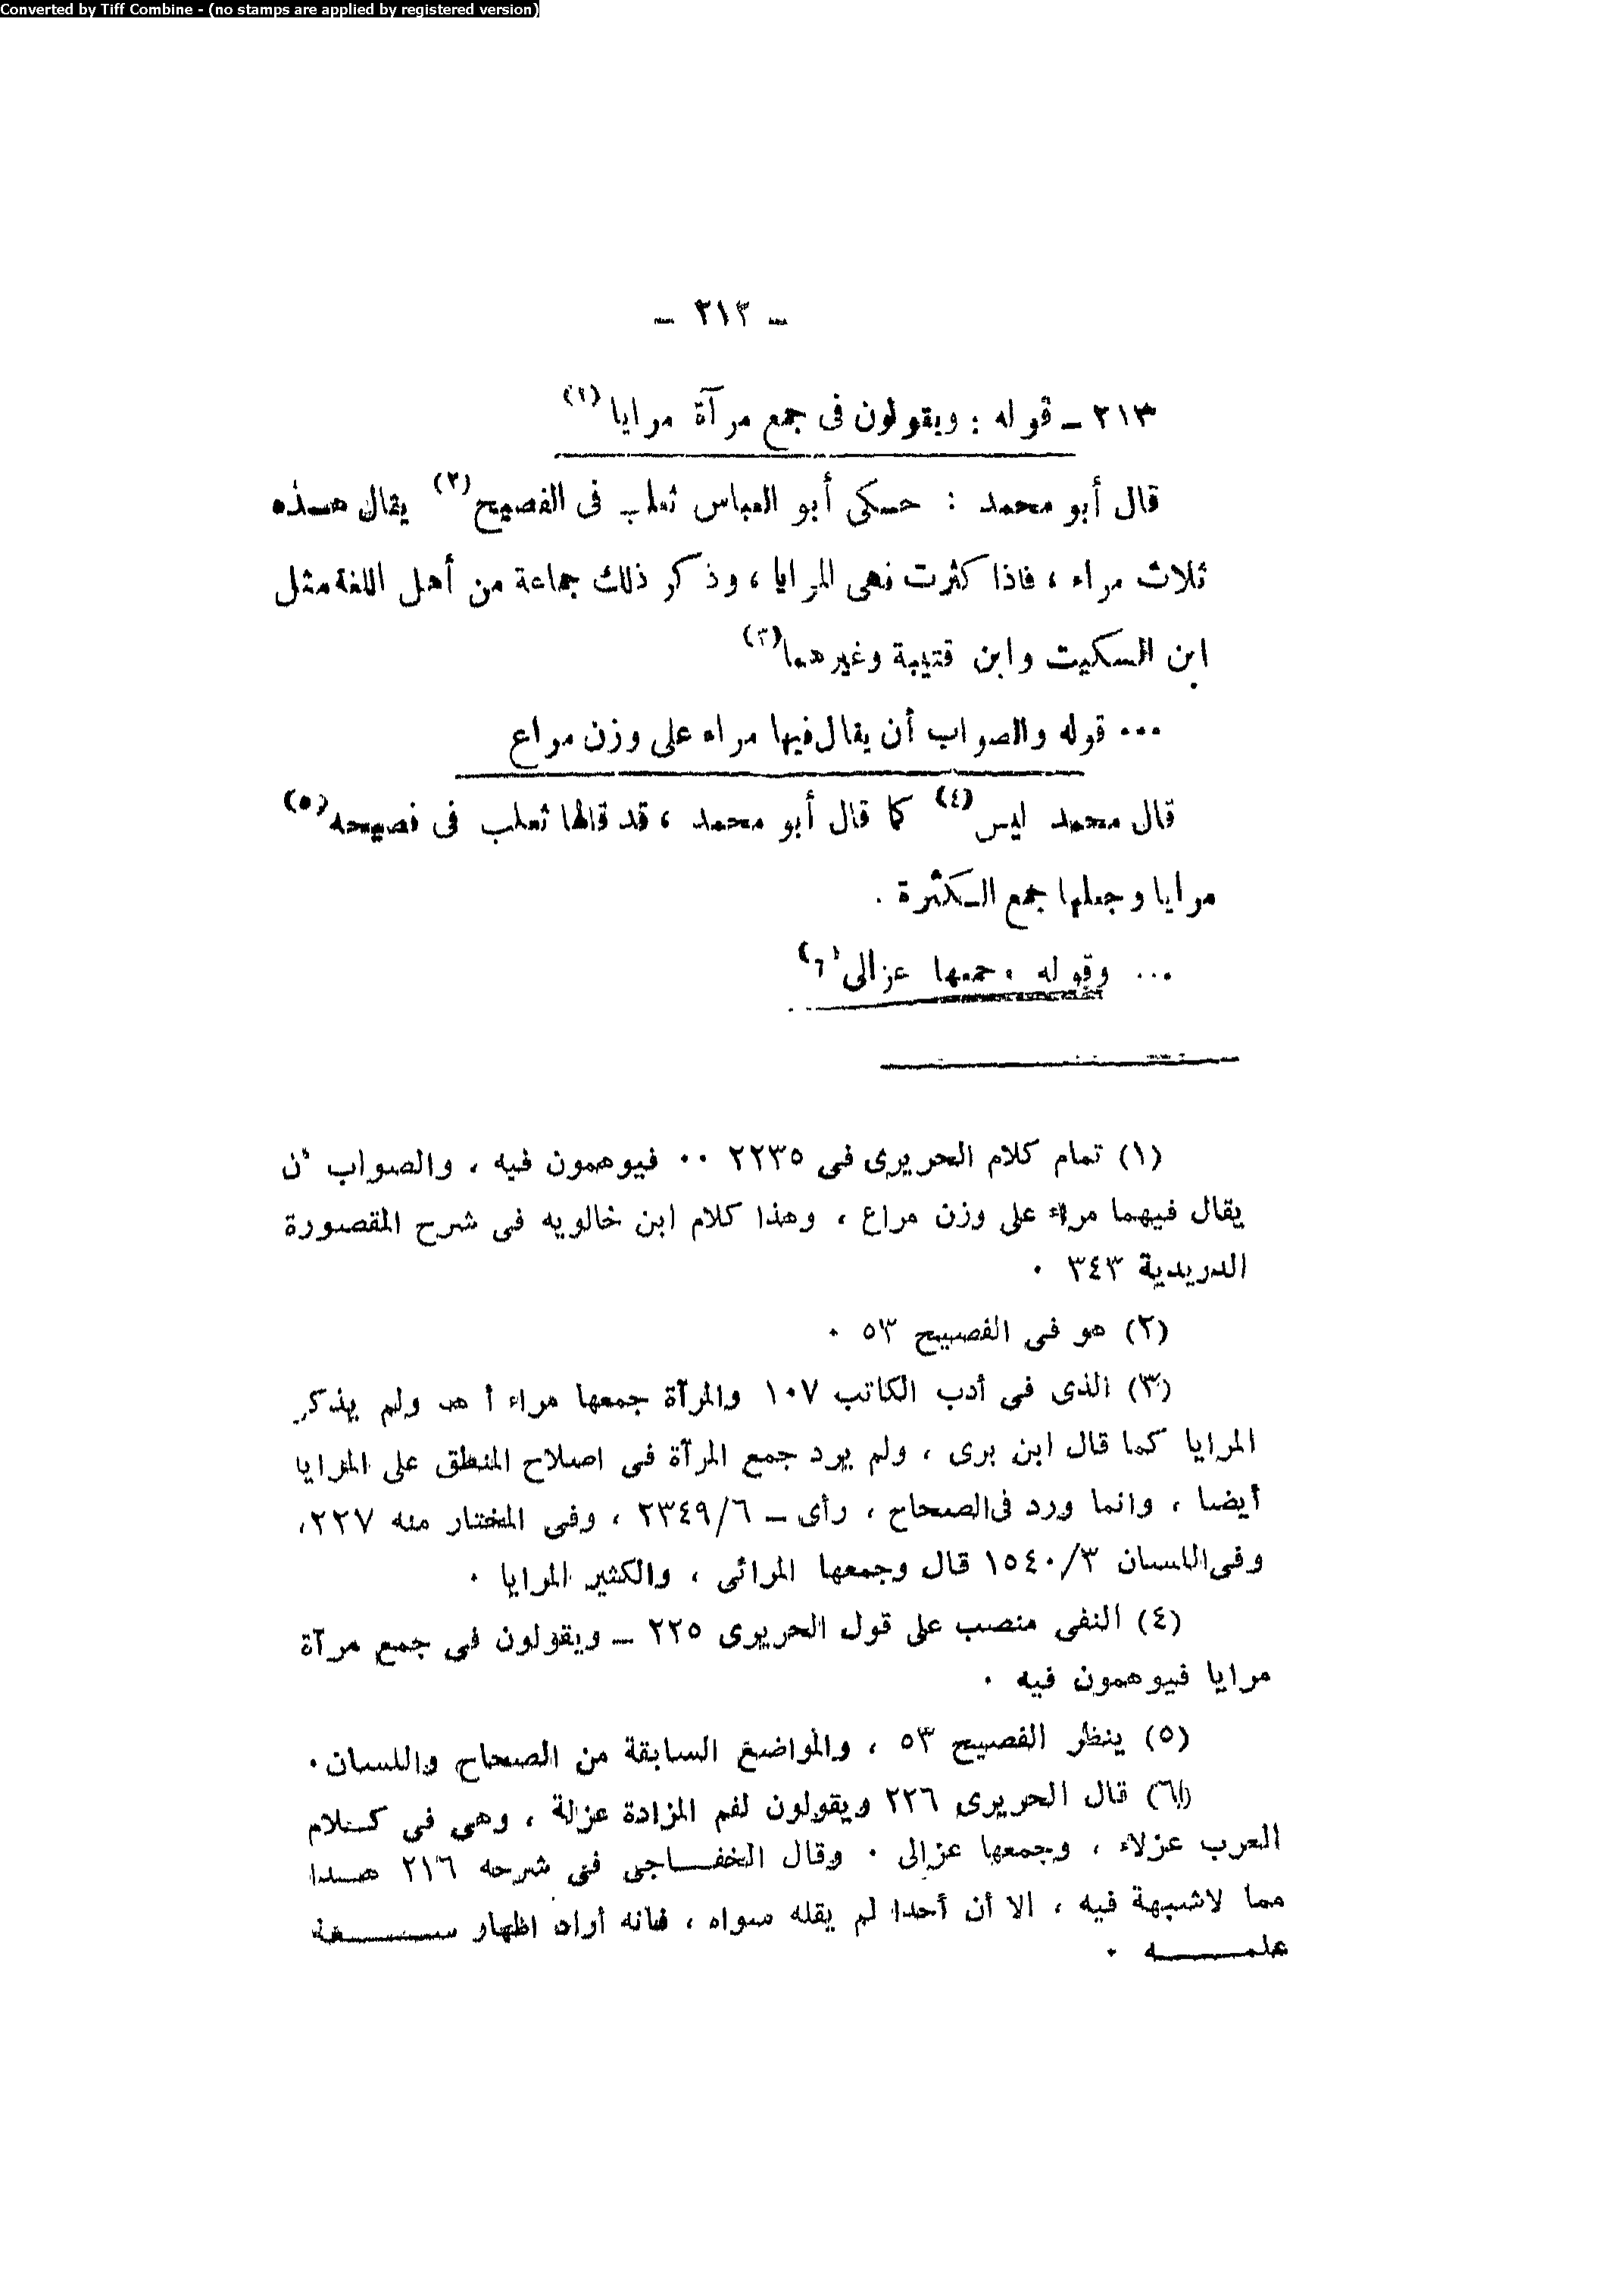 Converted by Tiff Combine - (no stamps are applied by registered version)
– ٢١٣ –
٢١٣ – قوله : ويقولون فى جمع مرآة مرايا (١)
قال أبو محمد : حكى أبو العباس ثعلب فى الفصيح (٢) يقال هذه
ثلاث مراء ، فاذا كثرت فهى المرايا ، وذكر ذلك جماعة من أهل اللغة مثل
ابن السكيت وابن قتيبة وغيرهما (٣)
... قوله والصواب أن يقال فيها مراء على وزن مراع
قال محمد ليس (٤) كما قال أبو محمد ، قد قالها ثعلب فى فصيحه (٥)
مرايا وجعلها جمع الكثرة .
... وقوله وجمعها عزالى (٦)
(١) تمام كلام الحريرى فى ٢٢٣٥ ٠٠ فيوهمون فيه ، والصواب أن
يقال فيهما مراء على وزن مراع ، وهذا كلام ابن خالويه فى شرح المقصورة
الدريدية ٣٤٣ ٠
(٢) هو فى الفصيح ٥٣ ٠
(٣) الذى فى أدب الكاتب ١٠٧ والمرآة جمعها مراء أ هـ ولم يذكر
المرايا كما قال ابن برى ، ولم يرد جمع المرآة فى اصلاح المنطق على المرايا
أيضا ، وانما ورد فى الصحاح ، رأى – ٢٣٤٩/٦ ، وفى المختار منه ٢٢٧،
وفى اللسان ١٥٤٠/٣ قال وجمعها المرائى ، والكثير المرايا ٠
(٤) النفى منصب على قول الحريرى ٢٢٥ – ويقولون فى جمع مرآة
مرايا فيوهمون فيه ٠
(٥) ينظر الفصيح ٥٣ ، والمواضع السابقة من الصحاح واللسان٠
(٦) قال الحريرى ٢٢٦ ويقولون لفم المزادة عزلة ، وهى فى كلام
العرب عزلاء ، وجمعها عزالى ٠ وقال الخفاجى فى شرحه ٢١٦ هذا
مما لاشبهة فيه ، الا أن أحدا لم يقله سواه ، فانه أراد اظهار سعة
علمه ٠